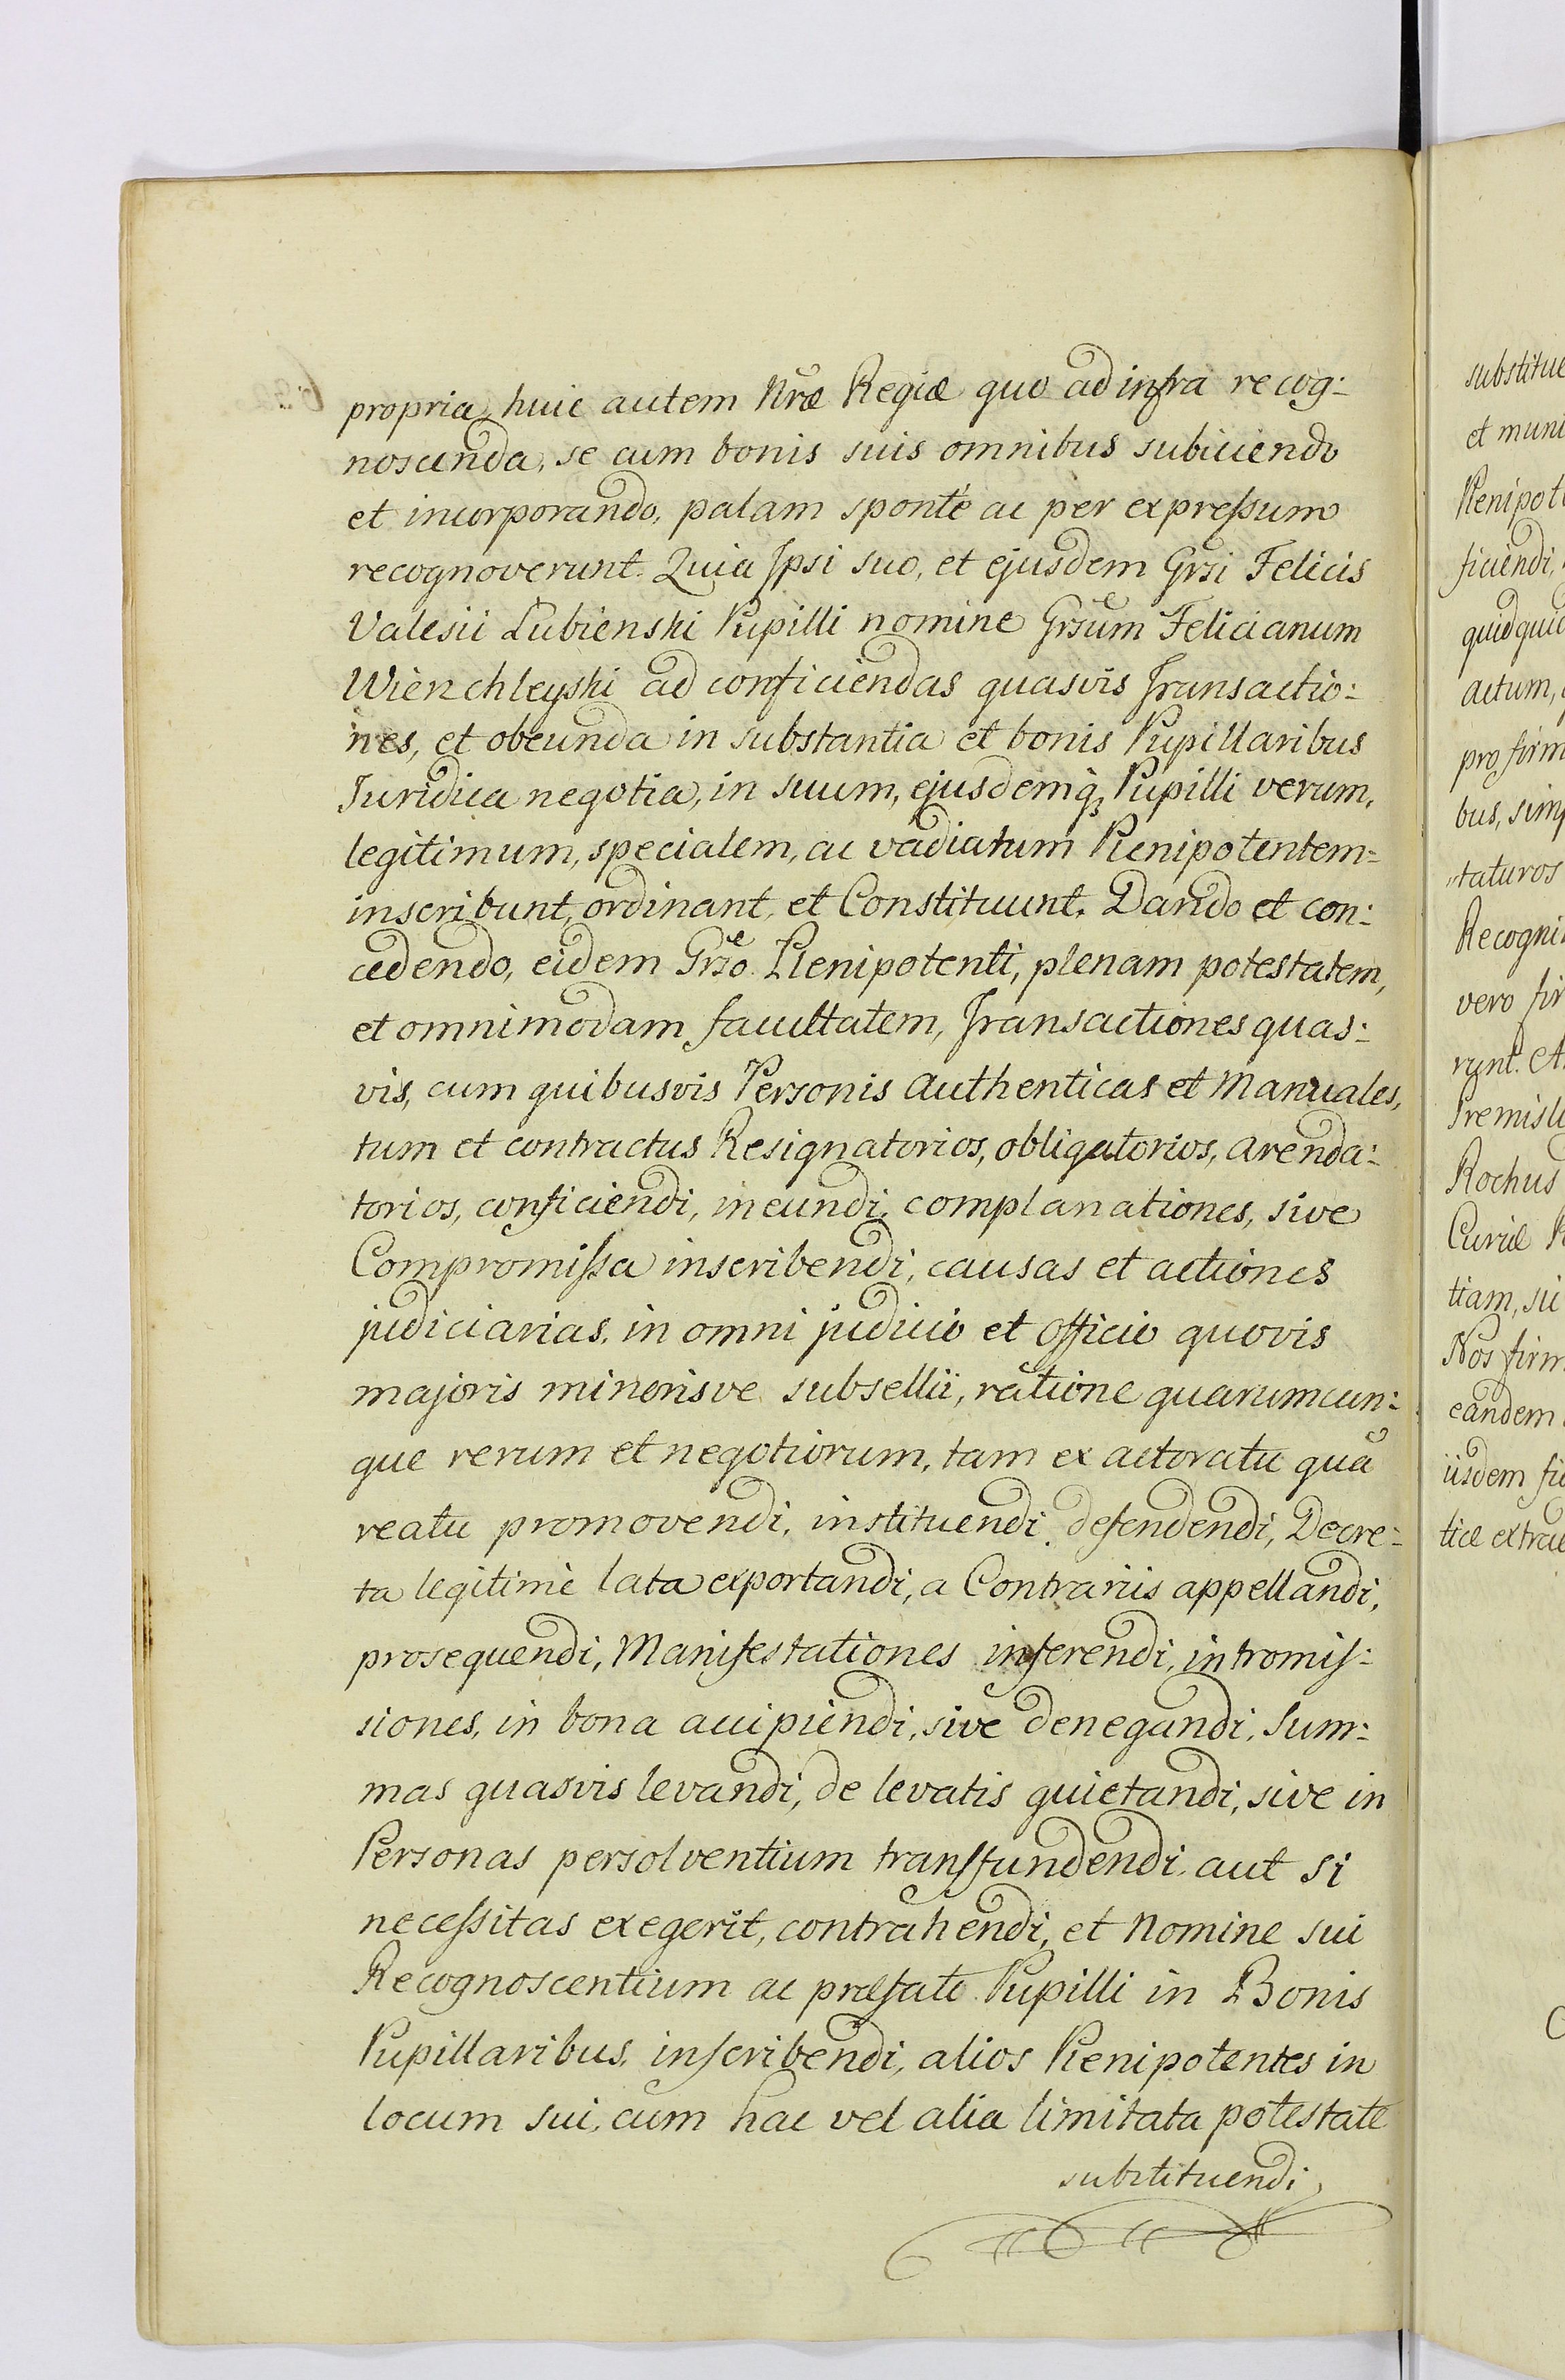 propria, huic autem Nrae Regiae quo ad infra recog:
noscenda, se cum bonis suis omnibus subiiciendo
et incorporando, palam sponte ac per expressum
recognoverunt. Quia Ipsi suo, et ejusdem Grsi Felicis
Valesii Łubienski Pupilli nomine Grsum Felicianum
Wienchleyski ad conficiendas quasvis Transactio:
nes, et obeunda in substantia et bonis Pupillaribus
Juridica negotia, in suum, ejusdemq; Pupilli verum,
legitimum, specialem, ac vadiatum Plenipotentem=
inscribunt, ordinant, et Constituunt. Dando et con:
cedendo, eidem Grso Plenipotenti, plenam potestatem,
et omnimodam facultatem, Transactiones quas:
vis, cum quibusvis Personis authenticas et Manuales,
tum et contractus Resignatorios, obligatorios, arenda:
torios, conficiendi, ineundi, complanationes, sive
Compromissa inscribendi, causas et actiones
judiciarias, in omni judicio et officio quovis
majoris minorisve subsellii, ratione quarumcun:
que rerum et negotiorum, tam ex actoratu quã
reatu promovendi, instituendi, defendendi, Decre:
ta legitimè lata exportandi, a Contrariis appellandi,
prosequendi, Manifestationes inferendi, intromis:
siones, in bona accipiendi, sive denegandi, Sum:
mas quasvis levandi, de levatis quietandi, sive in
Personas persolventium transfundendi, aut si
necessitas exegerit, contrahendi, et Nomine sui
Recognoscentium ac praefati Pupilli in Bonis
Pupillaribus, inscribendi, alios Plenipotentes in
locum sui, cum hac vel alia limitata potestate
substituendi,
substitue
et muni
Plenipote
ficiendi,
quidquid
actum,
pro firm
bus, simp
taturos
Recogni
vero fir
runt. A
Premisl
Rochus
Curiae
tiam, su
Nos firm
eandem
iisdem fi
tice extra